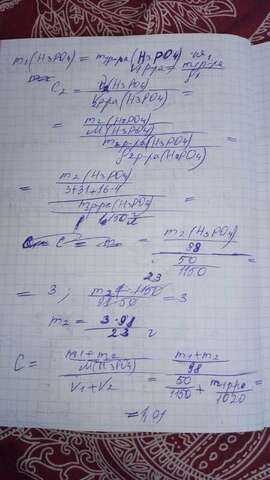 m₁(H₃PO₄) = mр-ра(H₃PO₄) · ω₁
Vр-ра = mр-ра / ρ₁
C₂ = (H₃PO₄) / Vр-ра(H₃PO₄) =
= m₂(H₃PO₄) / M(H₃PO₄) / mр-ра(H₃PO₄) / ρ₂р-ра(H₃PO₄) =
= m₂(H₃PO₄) / 3+31+16·4 / mр-ра(H₃PO₄) / 1150
C = = m₂(H₃PO₄) / 98 / 50 / 1150 =
23
= 3 ; m₂ · 1150 / 98 · 50 = 3
m₂ = 3·98 / 23 г
C = m₁+m₂ / M(H₃PO₄) / V₁+V₂ = m₁+m₂ / 98 / 50 / 1150 + m₁р-ра / 1020 =
= 1,01